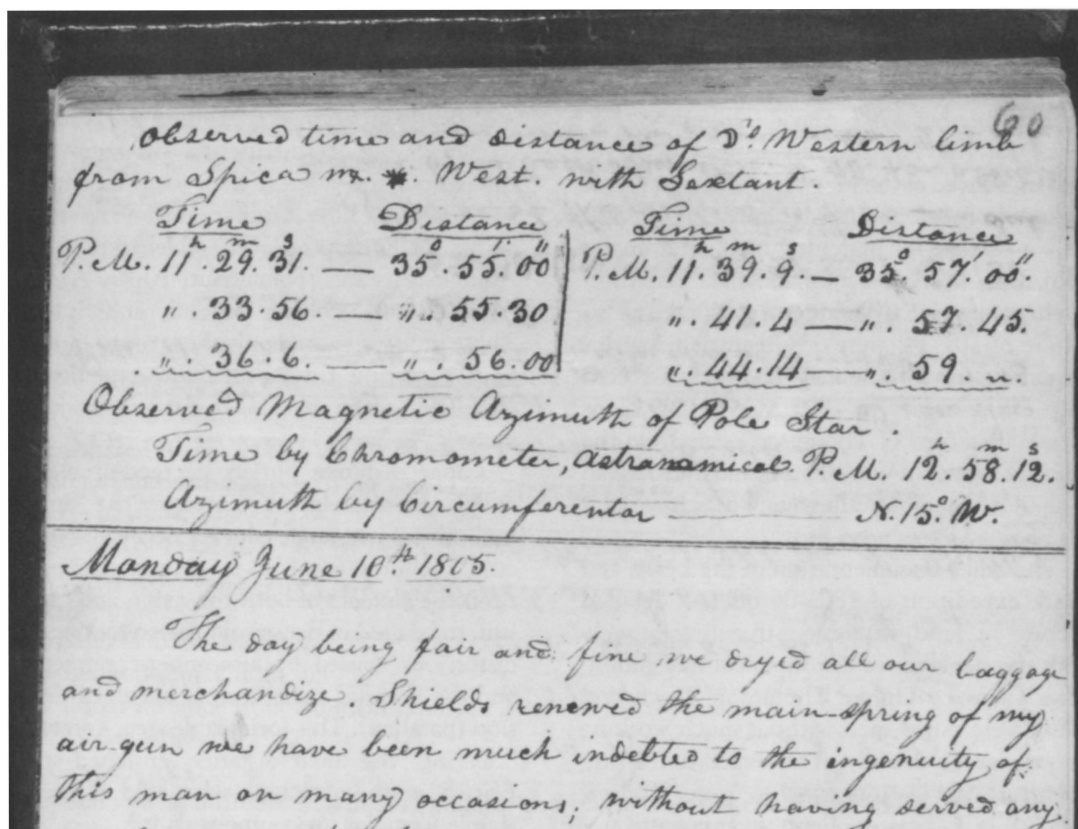 60
Observed time and distance of ☽'s Western limb
from Spica ♍ ✴. West. with Sextant.
Time Distance Time Distance
h m s ° ' " h m s ° ' "
P.M. 11. 29. 31. — 35. 55. 00 P.M. 11. 39. 9. — 35. 57. 00.
". 33. 56. — ". 55. 30 ". 41. 4 — ". 57. 45.
". 36. 6. — ". 56. 00 ". 44. 14 — ". 59 ".
Observed Magnetic Azimuth of Pole Star.
Time by Chronometer, Astranomical P.M. 12h. 58m. 12s.
Azimuth by Circumferentor — N. 15°. W.
Monday June 10th. 1805.
The day being fair and fine we dryed all our baggage
and merchandize. Shields renewed the main-spring of my
air-gun we have been much indebted to the ingenuity of
this man on many occasions; without having served any